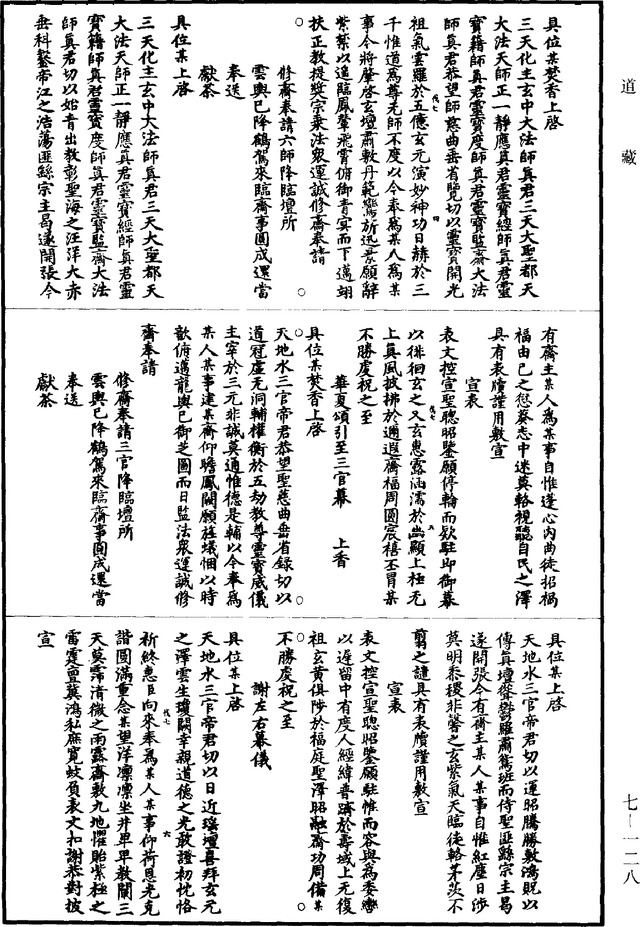 道藏
具位某焚香上啓
三天化主玄中大法師真君三天大聖都天
大法天師正一靜應真君靈寶經師真君靈
寶籍師真君靈寶度師真君靈寶監齋大法
師真君恭望師慈曲垂省覽切以靈寶開光
祖氣雲羅於五億玄元演妙神功日赫於三
千惟道為尊无師不度以今奉為某人為某
事今將肇啓玄壇肅敷丹範鸞旂迅景願辭
紫禁以遙臨鳳輦飛霄俯御青冥而下邁翊
扶正教提獎宗乗法衆運誠修齋奉請
修齋奉請六師降臨壇所
雲輿已降鶴駕來臨齋事圓成還當
奉送
獻茶
具位某上啓
三天化主玄中大法師真君三天大聖都天
大法天師正一靜應真君靈寶經師真君靈
寶籍師真君靈寶度師真君靈寶監齋大法
師真君切以始青出教彰聖海之汪洋大赤
垂科鑿帝江之浩蕩匪繇宗主曷遂開張今
有齋主某人為某事自惟蓬心內曲徒招禍
福由己之愆葵志中迷莫輅視聽自民之澤
具有表牘謹用敷宣
宣表
表文控宣聖聰昭鑒願停輪而欵駐即御幕
以徘徊玄之又玄惠露涵濡於幽顯上極无
上真風披拂於邇遐齋福周圓宸禧丕冒某
不勝虔祝之至
華夏頌引至三官幕 上香
具位某焚香上啓
天地水三官帝君恭望聖慈曲垂省錄切以
道冠虛无洞輔權衡於五劫教尊靈寶威儀
主宰於三元非誠莫通惟德是輔以今奉為
某人某事建某齋仰瞻鳳闕願旌蟻悃以時
歆俯邁龍輿已御芝園而日監法衆運誠修
齋奉請
修齋奉請三官降臨壇所
雲輿已降鶴駕來臨齋事圓成還當
奉送
獻茶
具位某上啓
天地水三官帝君切以運昭騰勝敷鴻貺以
傳真壇欝欝羅肅鴛班而侍聖匪繇宗主曷
遂開張今有齋主某人某事自惟紅塵日涉
莫明黍稷非馨之玄紫氣天臨徒輅茅茨不
翦之謹具有表牘謹用敷宣
宣表
表文控宣聖聰昭鑒願駐帷而容與為委轡
以遲留中有度人經緯普躋於壽域上无復
祖玄黄俱陟於福庭聖澤昭融齋功周備某
不勝虔祝之至
謝左右幕儀
具位某上啓
天地水三官帝君切以日近瑤壇喜拜玄元
之澤雲生瓊闕幸親道德之光敢證初忱恪
祈終惠臣向來奉為某人某事仰荷恩光克
諧圓滿重念某望洋凛凛坐井卑卑教闡三
天莫霈清微之雨露齋敷九地懼貽紫極之
雷霆亶冀鴻私庶寬蚊負表文扣謝恭對披
宣
七—一二八